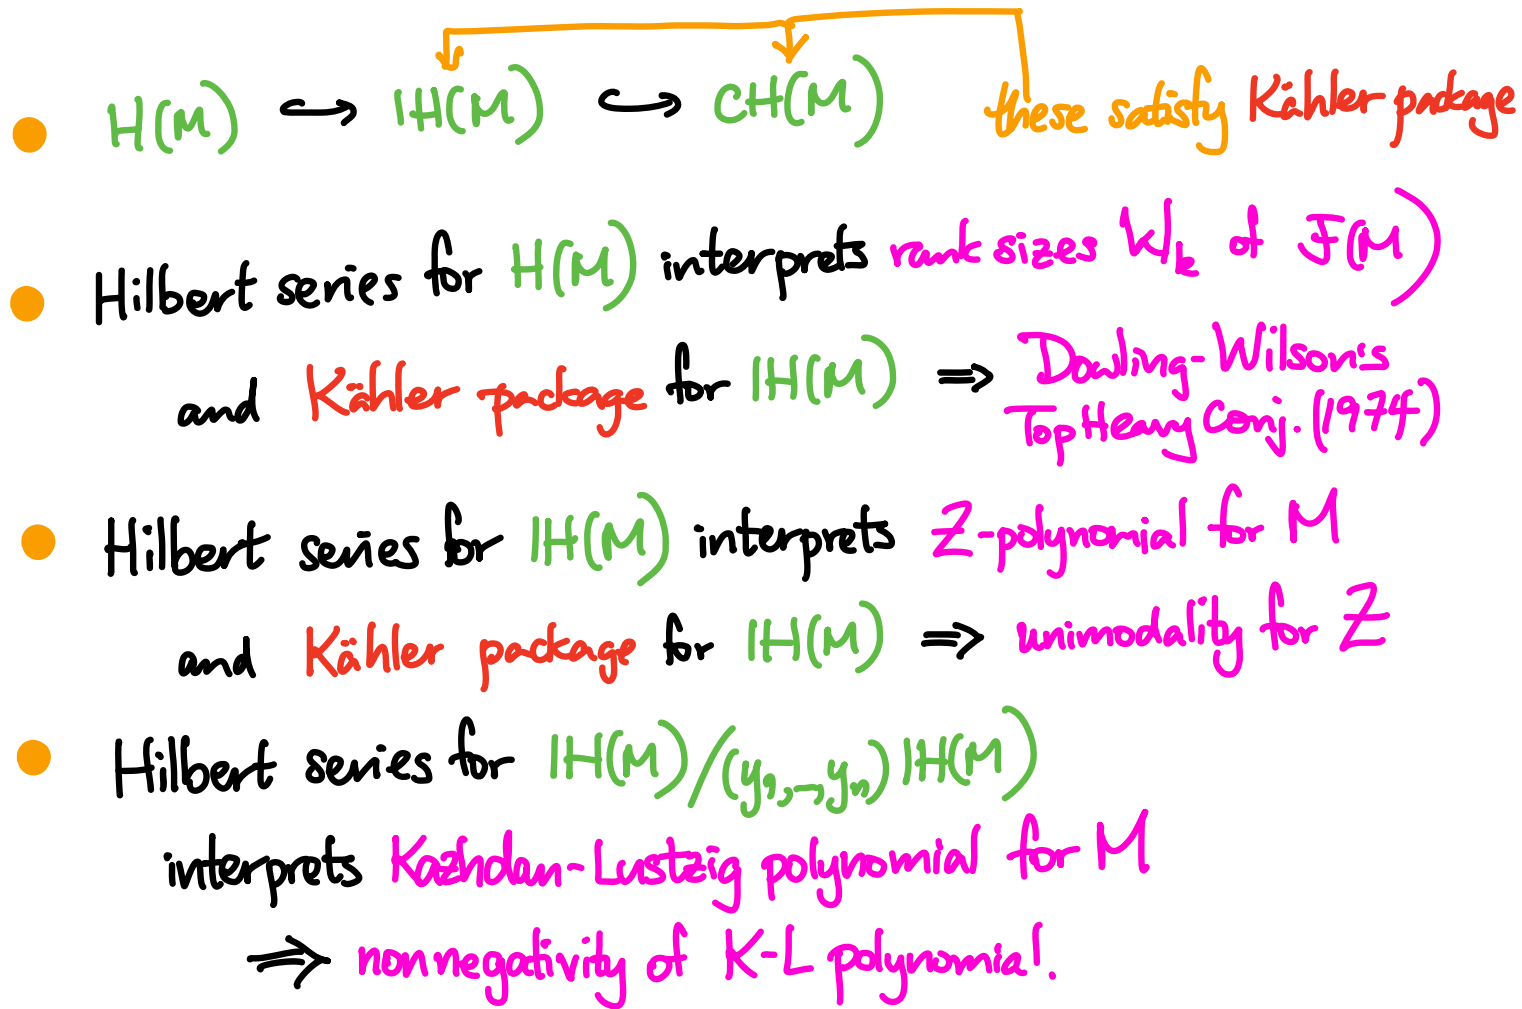 H(M) ↪ IH(M) ↪ CH(M) these satisfy Kähler package
Hilbert series for H(M) interprets rank sizes W_k of F(M)
and Kähler package for IH(M) ⇒ Dowling-Wilson's
Top Heavy Conj. (1974)
Hilbert series for IH(M) interprets Z-polynomial for M
and Kähler package for IH(M) ⇒ unimodality for Z
Hilbert series for IH(M)/(y_1,...,y_n)IH(M)
interprets Kazhdan-Lustzig polynomial for M
⇒ nonnegativity of K-L polynomial.